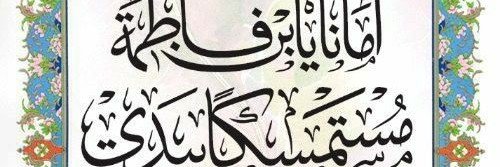 أمانا يابن فاطمة
مُستمسكا بيدي